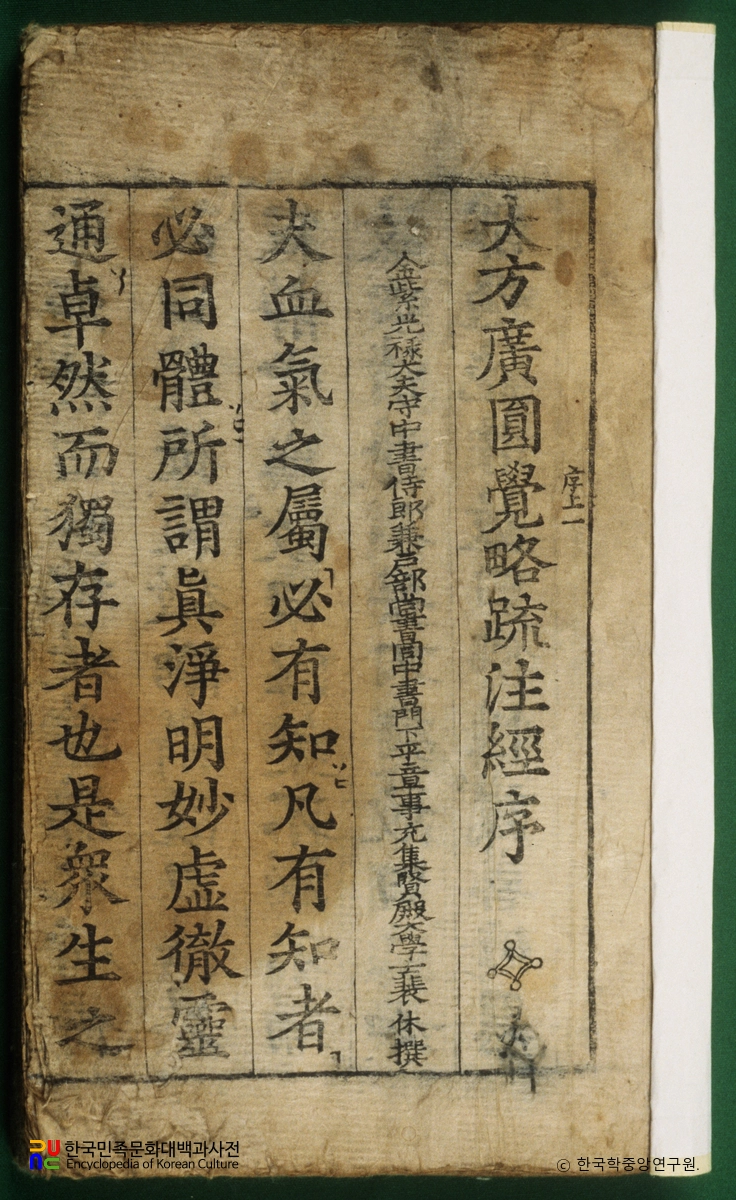 大方廣圓覺略疏注經序
序上一
金紫光祿大夫守中書侍郎兼戶部尚書同中書門下平章事充集賢殿大學士裴 休撰
夫血氣之屬必有知凡有知者
必同體所謂眞淨明妙虛徹靈
通卓然而獨存者也是衆生之
한국민족문화대백과사전
Encyclopedia of Korean Culture
© 한국학중앙연구원.